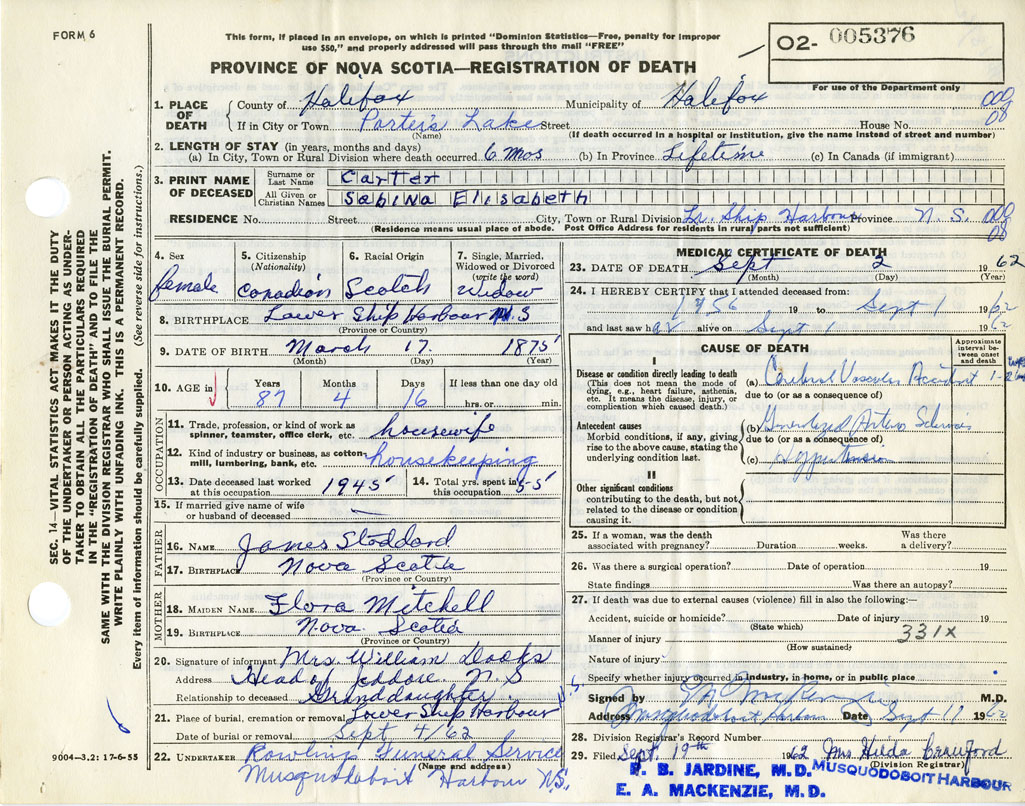 FORM 6
This form, if placed in an envelope, on which is printed "Dominion Statistics—Free, penalty for improper
use $50," and properly addressed will pass through the mail "FREE"
O2- 005376
For use of the Department only
PROVINCE OF NOVA SCOTIA—REGISTRATION OF DEATH
1. PLACE OF DEATH County of Halifax Municipality of Halifax
If in City or Town Porter's Lake Street House No.
(Name) (If death occurred in a hospital or institution, give the name instead of street and number)
2. LENGTH OF STAY (in years, months and days)
(a) In City, Town or Rural Division where death occurred 6 mos (b) In Province Lifetime (c) In Canada (if immigrant)
3. PRINT NAME OF DECEASED Surname or Last Name Carter
All Given or Christian Names Sabina Elisabeth
RESIDENCE No. Street City, Town or Rural Division Lr. Ship Harbour Province N. S.
(Residence means usual place of abode. Post Office Address for residents in rural parts not sufficient)
SEC. 14—VITAL STATISTICS ACT MAKES IT THE DUTY
OF THE UNDERTAKER OR PERSON ACTING AS UNDER-
TAKER TO OBTAIN ALL THE PARTICULARS REQUIRED
IN THE "REGISTRATION OF DEATH" AND TO FILE THE
SAME WITH THE DIVISION REGISTRAR WHO SHALL ISSUE THE BURIAL PERMIT.
WRITE PLAINLY WITH UNFADING INK. THIS IS A PERMANENT RECORD.
Every item of information should be carefully supplied. (See reverse side for instructions.)
4. Sex female
5. Citizenship (Nationality) Canadian
6. Racial Origin Scotch
7. Single, Married, Widowed or Divorced (write the word) Widow
8. BIRTHPLACE Lower Ship Harbour N.S
(Province or Country)
9. DATE OF BIRTH March 17 1875
(Month) (Day) (Year)
10. AGE in Years Months Days If less than one day old
87 4 16 hrs. or min.
OCCUPATION
11. Trade, profession, or kind of work as spinner, teamster, office clerk, etc. housewife
12. Kind of industry or business, as cotton mill, lumbering, bank, etc. housekeeping
13. Date deceased last worked at this occupation 1945
14. Total yrs. spent in this occupation 55
15. If married give name of wife or husband of deceased
FATHER
16. NAME James Stoddard
17. BIRTHPLACE Nova Scotia
(Province or Country)
MOTHER
18. MAIDEN NAME Flora Mitchell
19. BIRTHPLACE Nova Scotia
(Province or Country)
20. Signature of informant Mrs. William Dooks
Address Head of Jeddore N. S
Relationship to deceased Granddaughter
21. Place of burial, cremation or removal Lower Ship Harbour N.S.
Date of burial or removal Sept 4/62
22. UNDERTAKER Rowlings Funeral Service
(Name and address)
Musquodoboit Harbour N.S.
9004—3.2: 17-6-55
MEDICAL CERTIFICATE OF DEATH
23. DATE OF DEATH Sept 2 1962
(Month) (Day) (Year)
24. I HEREBY CERTIFY that I attended deceased from:
1956 19 to Sept 1 1962
and last saw her alive on Sept 1 1962
CAUSE OF DEATH
Approximate interval between onset and death
I
Disease or condition directly leading to death
(This does not mean the mode of dying, e.g., heart failure, asthenia, etc. It means the disease, injury, or complication which caused death.)
(a) Cerebral Vascular Accident 1-2
due to (or as a consequence of)
Antecedent causes
Morbid conditions, if any, giving rise to the above cause, stating the underlying condition last.
(b) Generalized Arterio Sclerosis
due to (or as a consequence of)
(c) Hypertension
II
Other significant conditions
contributing to the death, but not related to the disease or condition causing it.
25. If a woman, was the death associated with pregnancy? Duration weeks. Was there a delivery?
26. Was there a surgical operation? Date of operation 19
State findings Was there an autopsy?
27. If death was due to external causes (violence) fill in also the following:—
Accident, suicide or homicide? Date of injury 19
(State which)
Manner of injury 331X
(How sustained)
Nature of injury
Specify whether injury occurred in industry, in home, or in public place
Signed by M.D.
Address Musquodoboit Harbour Date Sept 11 1962
28. Division Registrar's Record Number
29. Filed Sept. 19th 1962 Mrs Hilda Crawford
(Division Registrar)
P. B. JARDINE, M.D.
E. A. MACKENZIE, M.D.
MUSQUODOBOIT HARBOUR